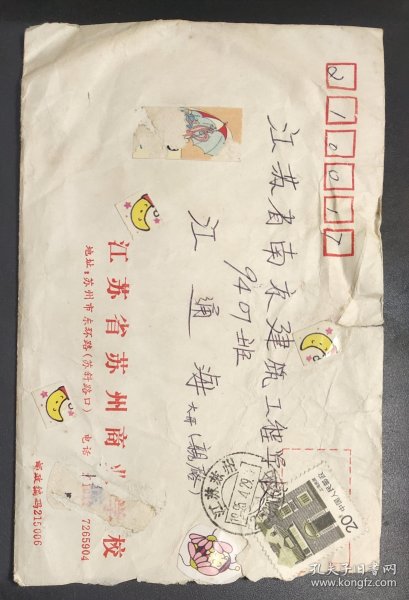 210017
江苏省南京建筑工程学校
9407班
江通海 大哥(親啓)
江苏省苏州商业学校
地址:苏州市东环路(苏斜路口) 电话
7265904
邮政编码215006
20 中国人民邮政
江苏苏州
孔夫子旧书网
www.kongfz.com